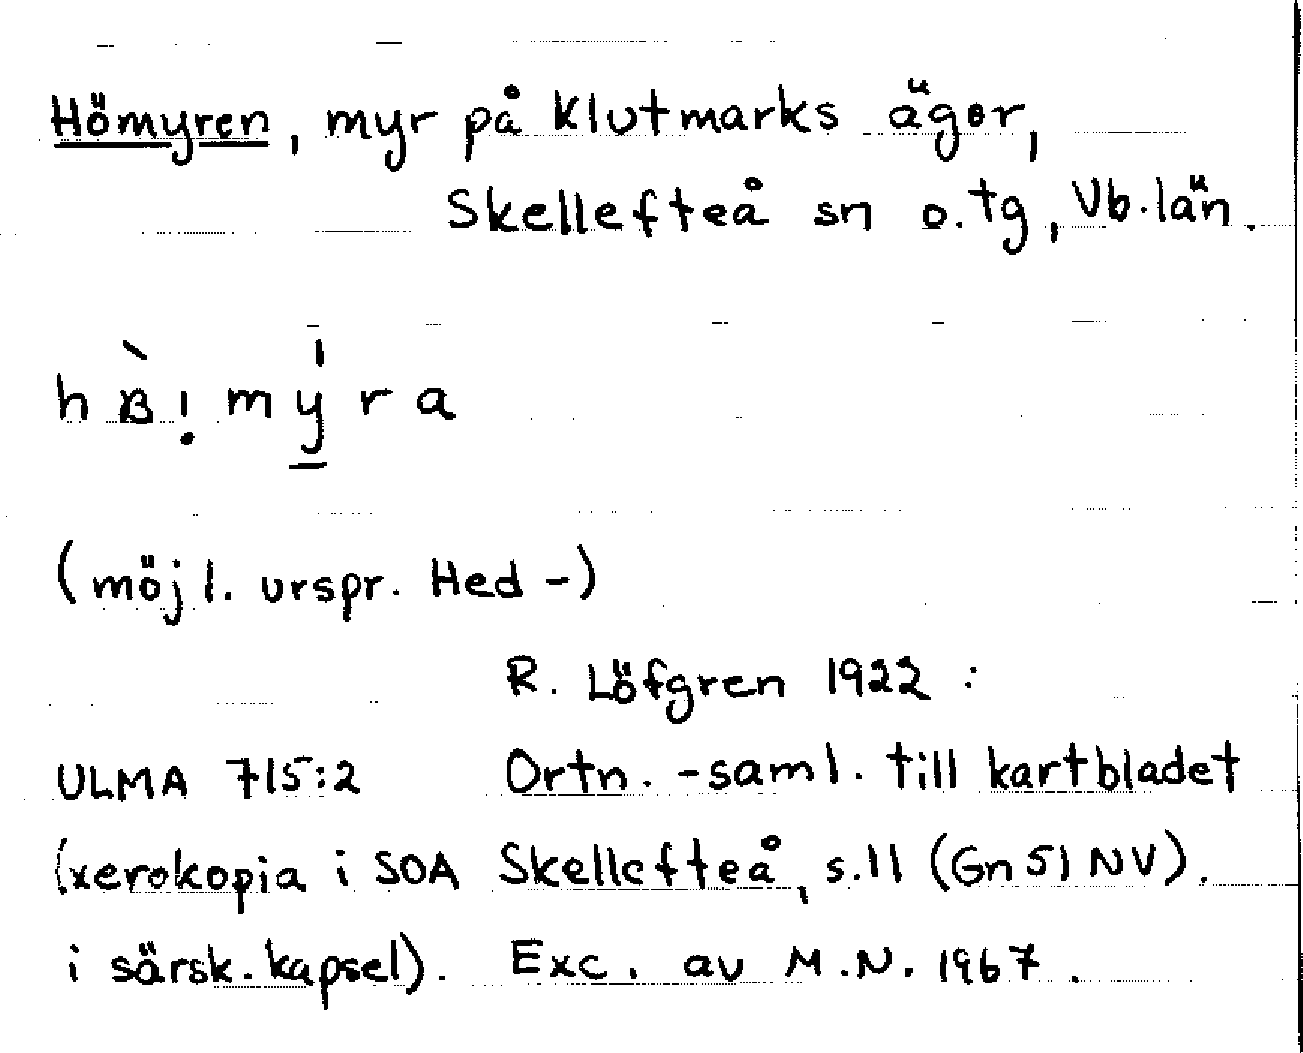 Hömyren, myr på Klutmarks ägor,
Skellefteå sn o. tg, Vb. län.
(möjl. urspr. Hed-)
R. Löfgren 1922:
ULMA 715:2 Ortn.-saml. till kartbladet
(xerokopia i SOA Skellefteå, s. 11 (Gn 51 NV).
i särsk. kapsel). Exc. av M.N. 1967.